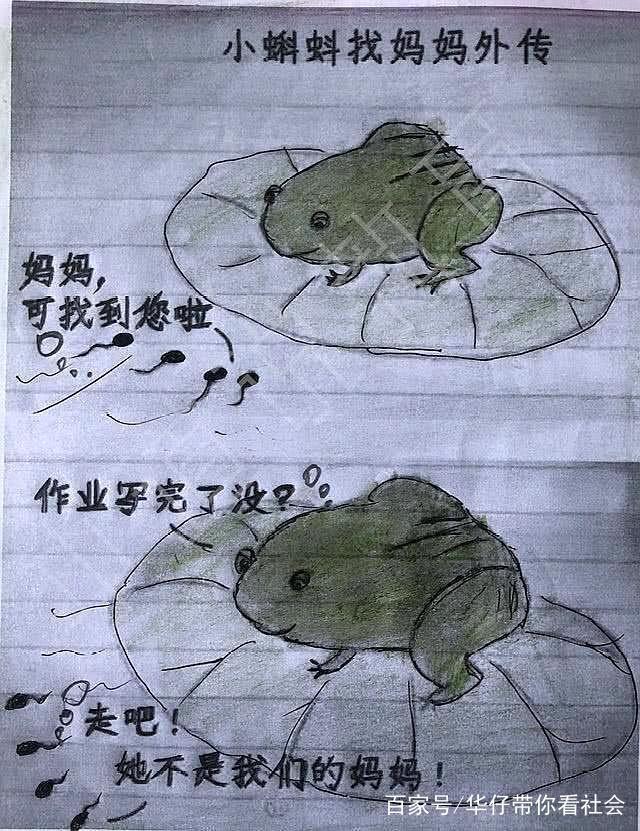 小蝌蚪找妈妈外传
妈妈,
可找到您啦
作业写完了没?
走吧!
她不是我们的妈妈!
百家号/华仔带你看社会